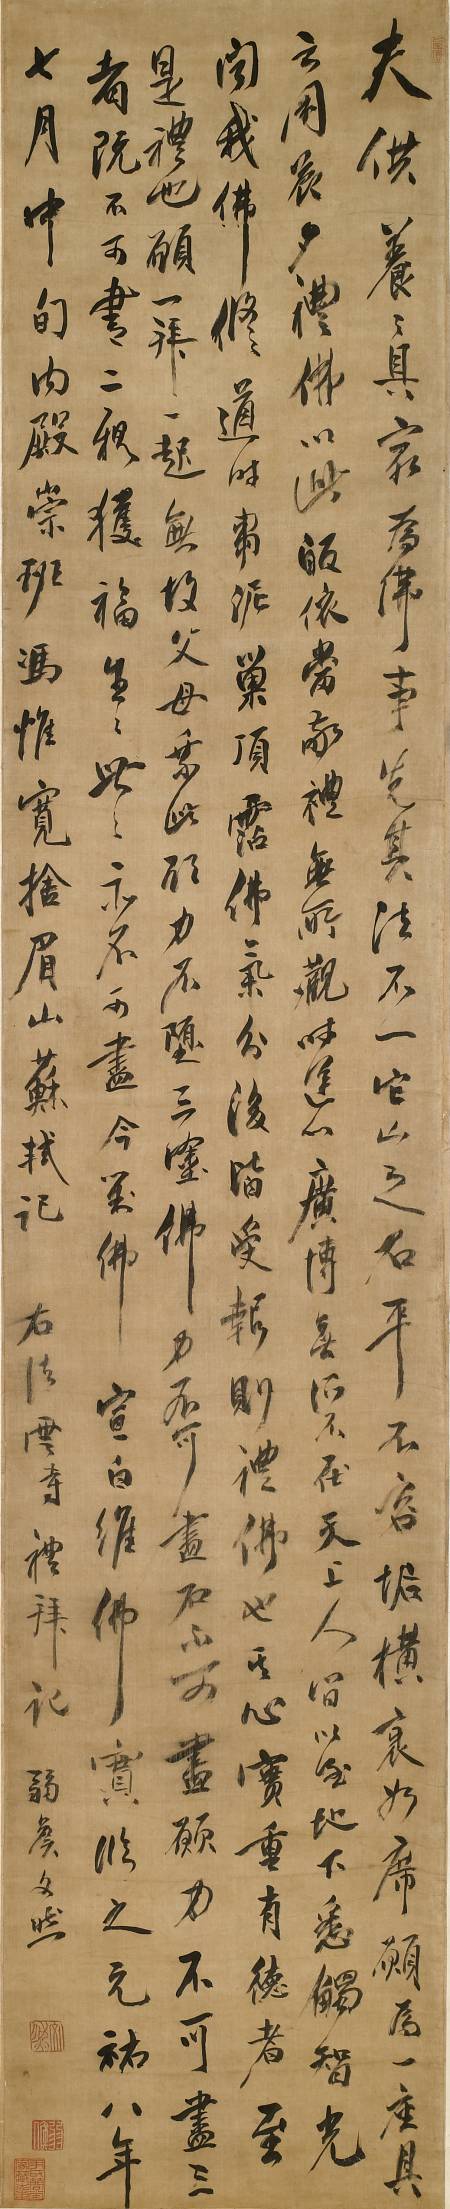 夫供養之具最為佛事先其法不一它山之石平不容垢橫袤如席願為一座具
之用晨夕禮佛以此皈依當敬禮無所觀時運心廣博無所不在天上人間以至地下悉觸智光
聞我佛修道時芻泥巢頂霑佛氣分後皆受報則禮佛也其心實重有德者至
是禮也願一拜一起無故父母乘此願力不墮三塗佛力不可盡石不可盡願力不可盡三
者既不可盡二親獲福生生世世亦不可盡今對佛宣白維佛實臨之元祐八年
七月中旬内殿崇班馮惟寬捨眉山蘇軾記 右法雲寺禮拜記